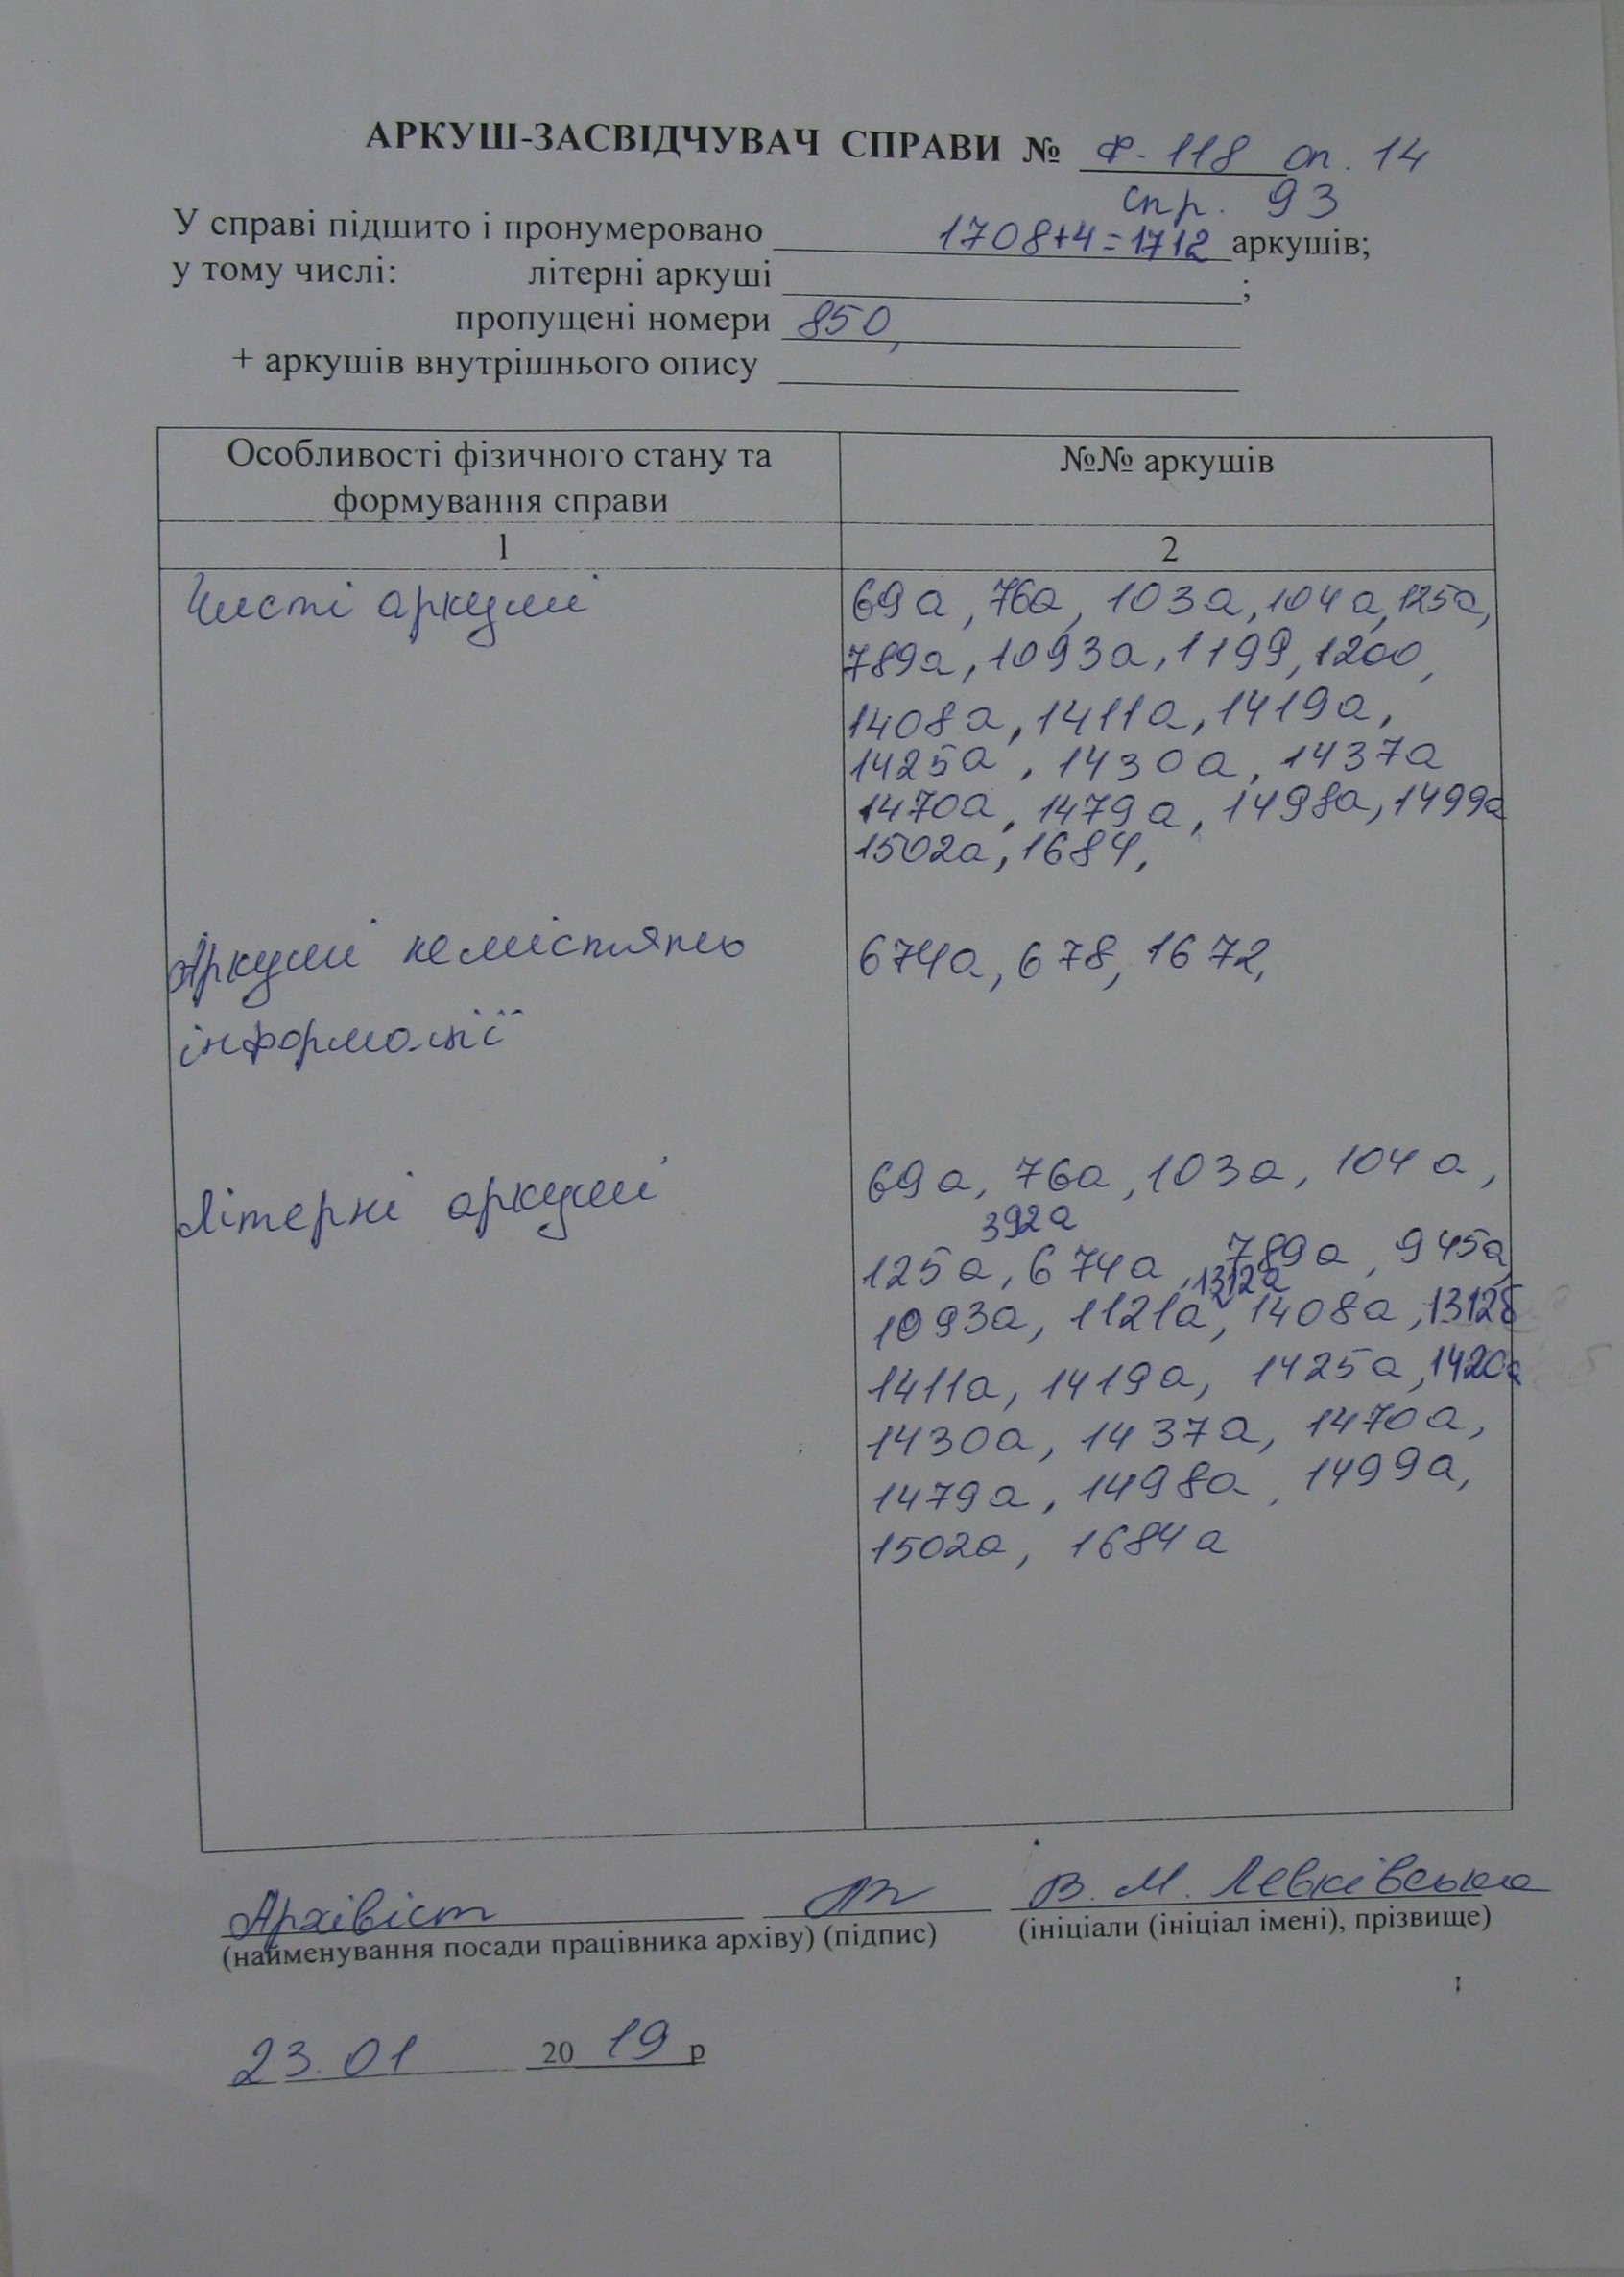 АРКУШ-ЗАСВІДЧУВАЧ СПРАВИ № Ф. 118 оп. 14
спр. 93
У справі підшито і пронумеровано 1708+4=1712 аркушів;
у тому числі: літерні аркуші ;
пропущені номери 850,
+ аркушів внутрішнього опису
Особливості фізичного стану та
формування справи
№№ аркушів
1 2
Чисті аркуші
69а, 76а, 103а, 104а, 125а,
789а, 1093а, 1199, 1200,
1408а, 1411а, 1419а,
1425а, 1430а, 1437а
1470а, 1479а, 1498а, 1499а
1502а, 1684,
Аркуші не містять
інформації
674а, 678, 1672,
Літерні аркуші
69а, 76а, 103а, 104а,
392а
125а, 674а, 789а, 945а,
1312а
1093а, 1121а, 1408а, 1312б
1411а, 1419а, 1425а, 1420а
1430а, 1437а, 1470а,
1479а, 1498а, 1499а,
1502а, 1684а
Архівіст В. М. Левківська
(найменування посади працівника архіву) (підпис) (ініціали (ініціал імені), прізвище)
23.01 2019 р